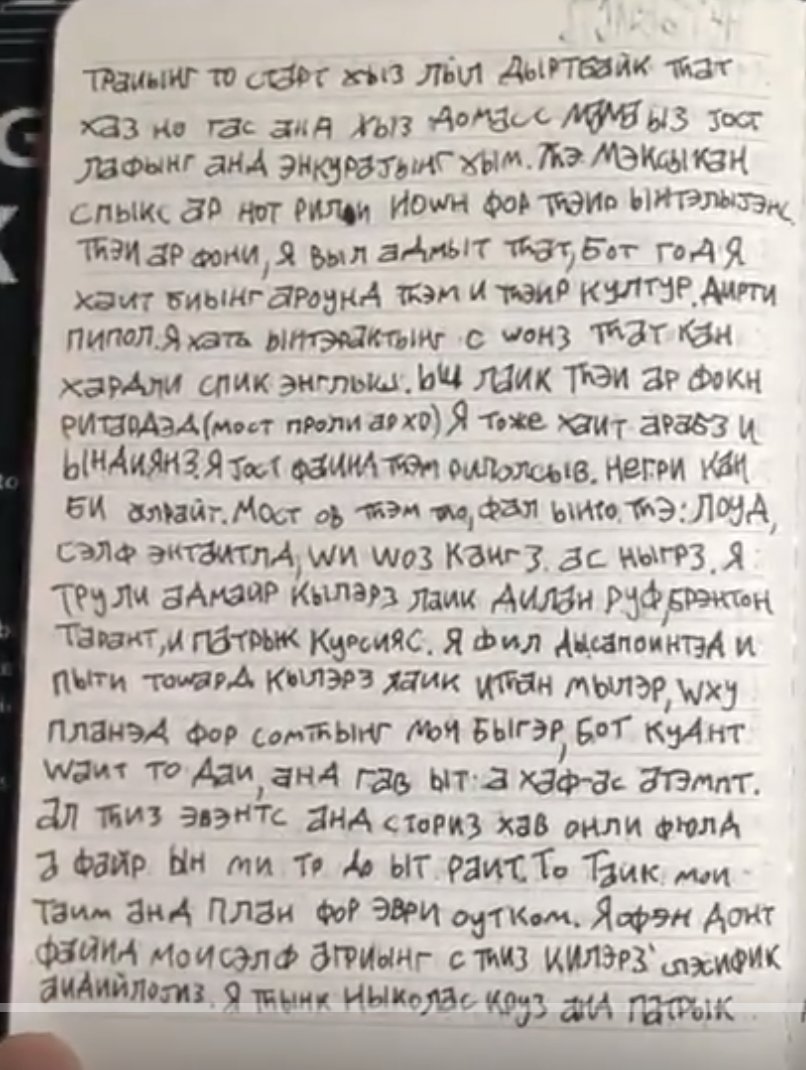 ТРАИЫНГ ТО СТАРТ ХЫЗ ЛЫЛ ДЫРТБАЙК ТhАТ
ХАЗ НО ГАС АНД ХЫЗ ДОМАСС МАМА ЫЗ JОСТ
ЛАФЫНГ АНД ЭНКУРАJЫНГ ХЫМ. ТhЭ МЭКСЫКАН
СПЫКС АР НОТ РИЛИ НОWН ФОР ТhЭИР ЫНТЭЛЫJЭНС.
ТhЭИ АР ФОНИ, Я ВЫЛ АДМЫТ ТhАТ, БОТ ГОД Я
ХАИТ БИЫНГ АРОУНД ТhЭМ И ТhЭИР КУЛТУР. ДИРТИ
ПИПОЛ. Я ХАТЬ ЫНТЭРАКТЫНГ С WОНЗ ТhАТ КАН
ХАРДЛИ СПИК ЭНГЛЫШ. ЫЩ ЛАИК ТhЭИ АР ФОКН
РИТАРДЭД (МОСТ ПРОЛИ АР ХО) Я ТОЖЕ ХАИТ АРАБЗ И
ЫНДИЯНЗ. Я JОСТ ФАИНД ТhЭМ РИПОЛСЫВ. НЕГРИ КАН
БИ АЛРАЙТ. МОСТ ОВ ТhЭМ ТhО, ФАЛ ЫНТО ТhЭ: ЛОУД,
СЭЛФ ЭНТАИТЛД, WИ WОЗ КАНГЗ. АС НЫГРЗ. Я
ТРУЛИ АДМАИР КЫЛЭРЗ ЛАИК ДИЛАН РУФ, БРЭНТОН
ТАРАНТ, И ПАТРЫЖ КУРСИЯС. Я ФИЛ ДЫСАПОИНТЭД И
ПЫТИ ТОWАРД КЫЛЭРЗ ЛАИК ИТhАН МЫЛЭР, WХУ
ПЛАНЭД ФОР СОМТhЫНГ МОЧ БЫГЭР, БОТ КУДНТ
WАИТ ТО ДАИ, АНД ГАВ ЫТ А ХАФ-АС АТЭМПТ.
АЛ ТhИЗ ЭВЭНТС АНД СТОРИЗ ХАВ ОНЛИ ФЮЛД
А ФАЙР ЫН МИ ТО ДО ЫТ РАИТ. ТО ТАИК МОИ
ТАИМ АНД ПЛАН ФОР ЭВРИ ОУТКОМ. Я ОФЭН ДОНТ
ФАЙНД МОИСЭЛФ АГРИЫНГ С ТhИЗ КИЛЭРЗ' СПЭСИФИК
АИДИЙЛОJИЗ. Я ТhЫНК НЫКОЛАС КРУЗ АНД ПАТРЫК